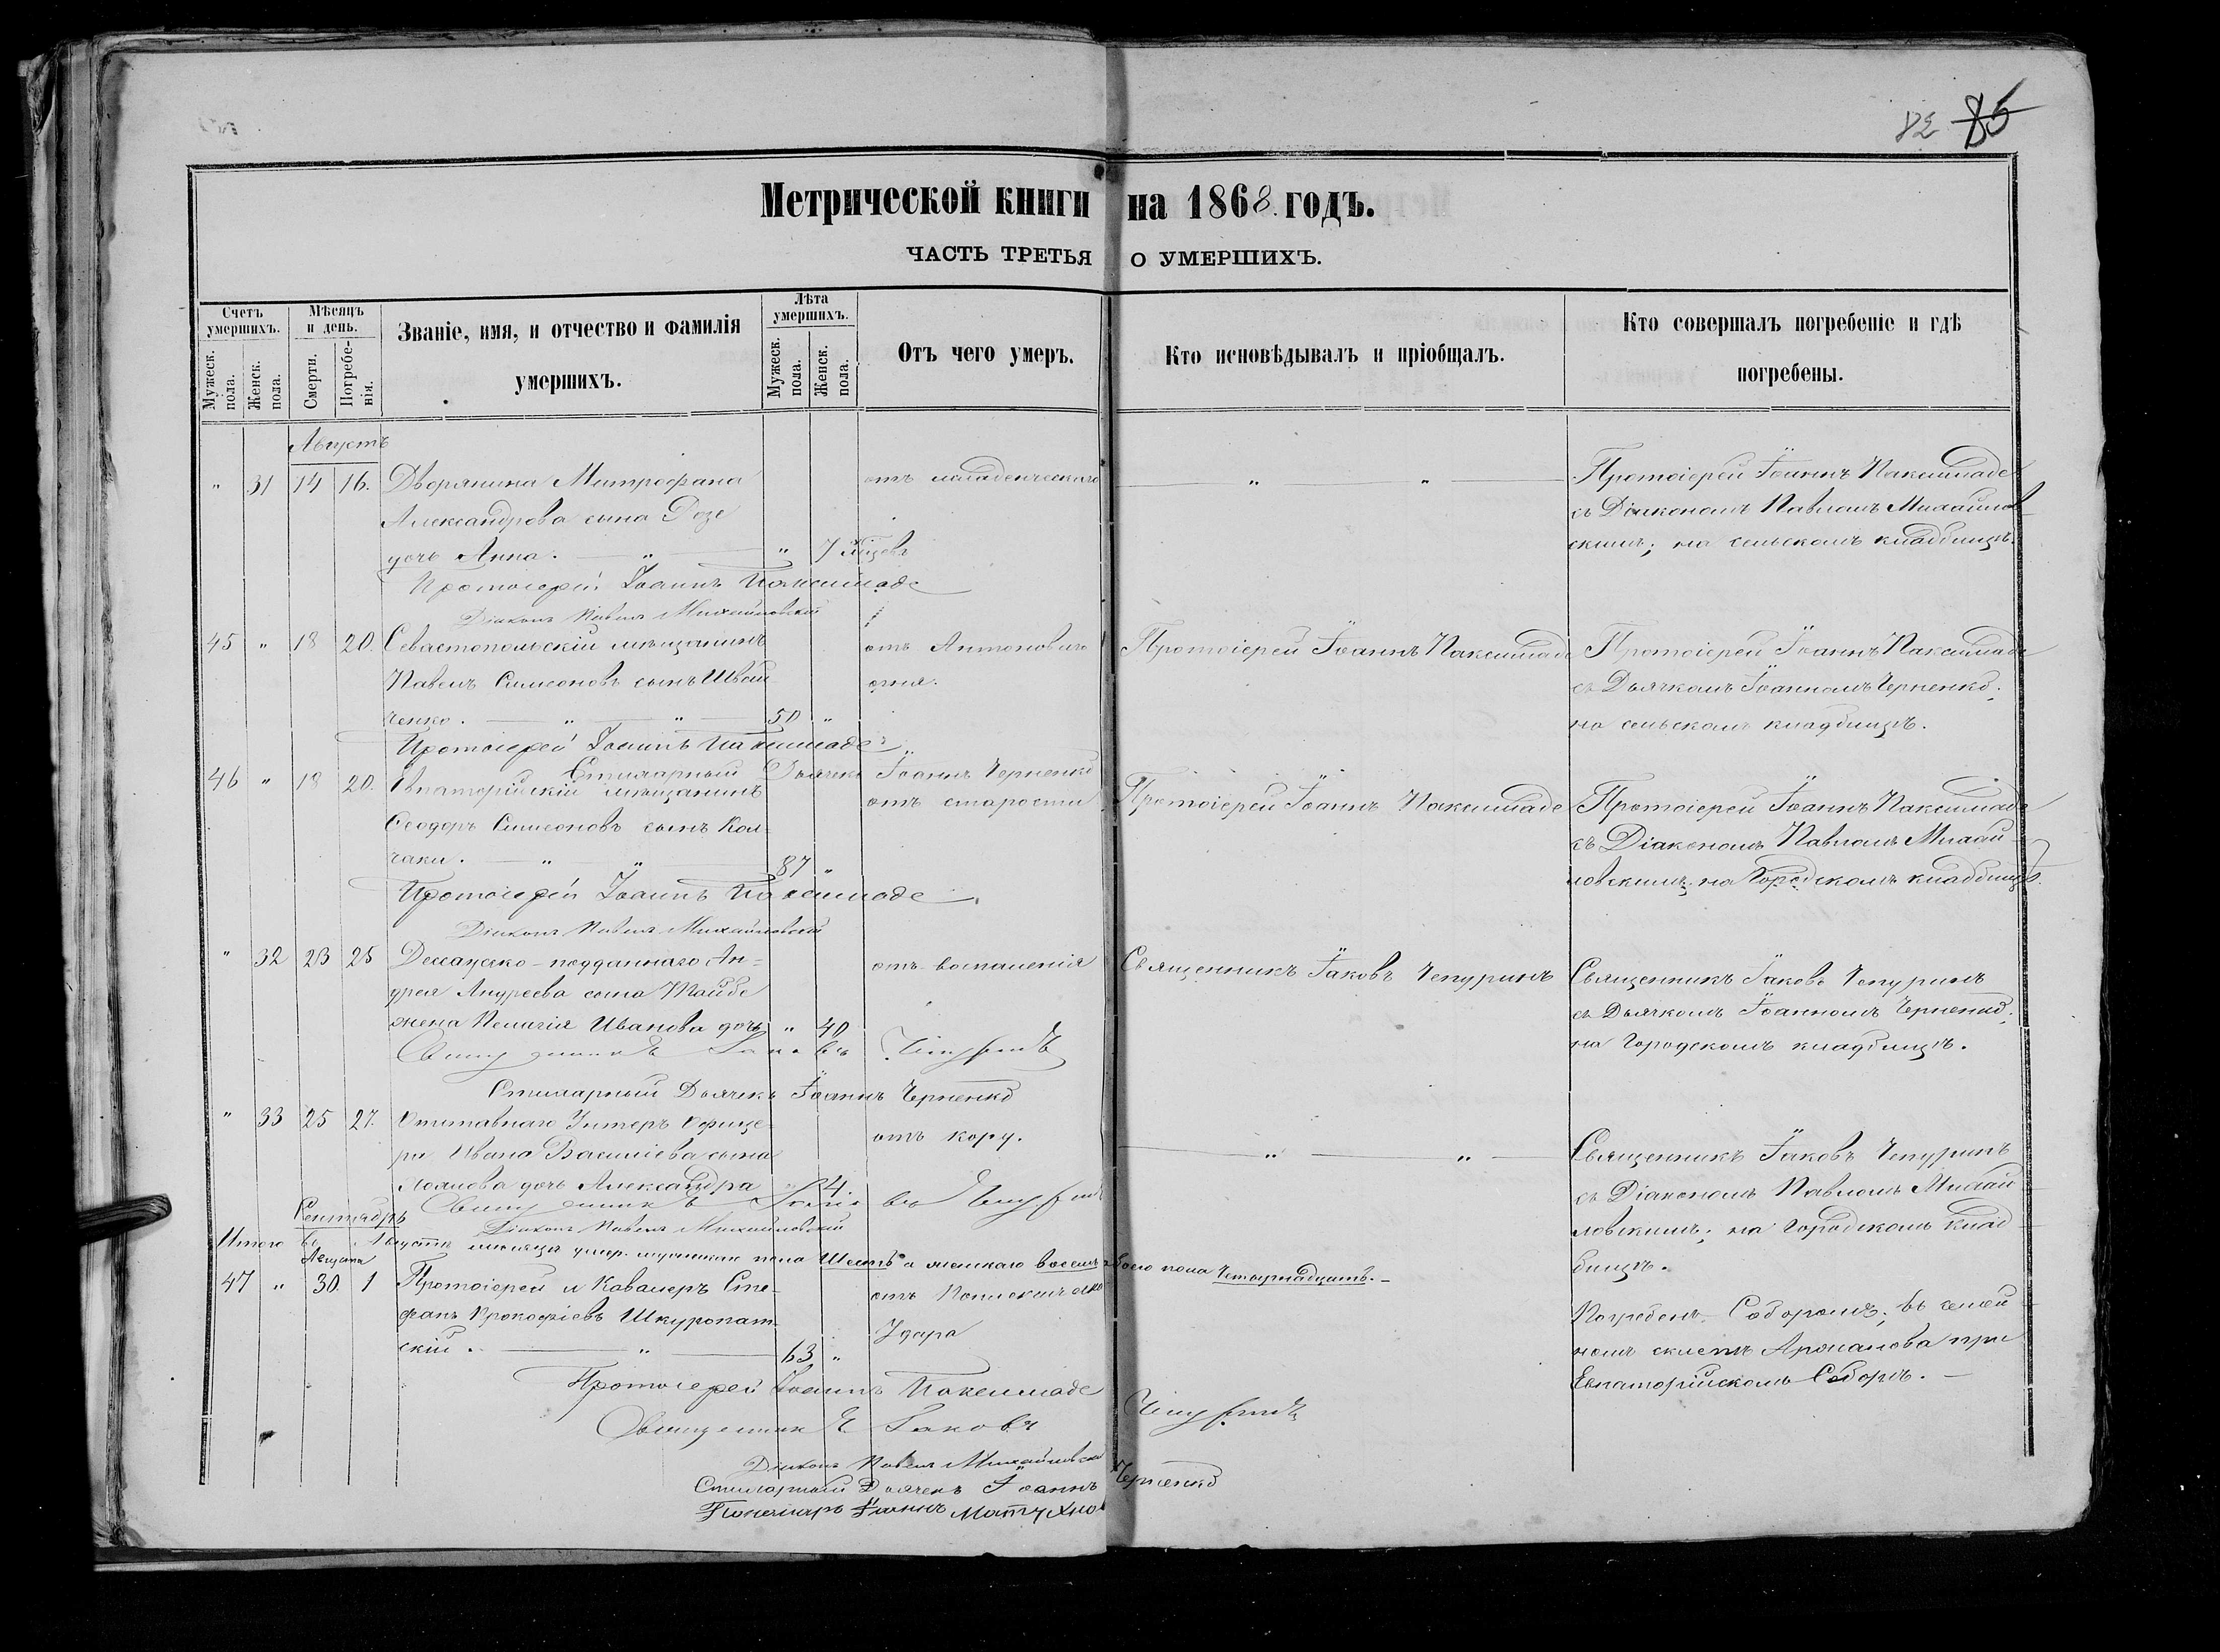 85
Метрической книги на 1868. годъ.
ЧАСТЬ ТРЕТЬЯ О УМЕРШИХЪ.
Счетъ умершихъ.
Мужеск. пола.
Женск. пола.
Мѣсяцъ и день.
Смерти.
Погребенія.
Званіе, имя, и отчество и фамилія умершихъ.
Лѣта умершихъ.
Мужеск. пола.
Женск. пола.
Отъ чего умеръ.
Кто исповѣдывалъ и пріобщалъ.
Кто совершалъ погребеніе и гдѣ погребены.
Августъ
" 31 14 16. Дворянина Митрофана отъ младенческаго " " Протоіерей Іоаннъ Паксимаде
Александрова сына Розе съ Діакономъ Павломъ Михайлов
дочь Анна. " " 7 скимъ; на сельскомъ кладбищѣ.
Протоіерей Іоаннъ Паксимаде
Діаконъ Павелъ Михайловскій
45 " 18 20. Севастопольскій мѣщанинъ отъ Антонового Протоіерей Іоаннъ Паксимаде Протоіерей Іоаннъ Паксимаде
Павелъ Симеоновъ сынъ Швай огня. съ Дьячкомъ Іоанномъ Черненко;
ченко. " " 50 " на сельскомъ кладбищѣ.
Протоіерей Іоаннъ Паксимаде
Стихарный Дьячекъ Іоаннъ Черненко
46 " 18 20. Евпаторійскій мѣщанинъ отъ старости Протоіерей Іоаннъ Паксимаде Протоіерей Іоаннъ Паксимаде
Ѳеодоръ Симеоновъ сынъ Кол- съ Діакономъ Павломъ Михай
чаки. " " 87 " ловскимъ; на Городскомъ кладбищѣ.
Протоіерей Іоаннъ Паксимаде
Діаконъ Павелъ Михайловскій
" 32 23 25 подданнаго Ан= отъ воспаленія Священникъ Іаковъ Чепуринъ Священникъ Іаковъ Чепуринъ
дрея Андреева сына съ Дьячкомъ Іоанномъ Черненко;
жена Пелагія Иванова дочь " 40 на Городскомъ кладбищѣ.
Священникъ Іаковъ Чепуринъ
Стихарный Дьячекъ Іоаннъ Черненко
" 33 25 27. Отставнаго Унтеръ Офице- отъ кору. " " Священникъ Іаковъ Чепуринъ
ра Ивана Васильева сына съ Діакономъ Павломъ Михай
дочь Александра " 4 ловскимъ; на Городскомъ клад
Священникъ Іаковъ Чепуринъ бищѣ.
Діаконъ Павелъ Михайловскій
Сентябрь
Итого въ Августѣ мѣсяцѣ умер. мужескаго пола Шесть а женскаго восемь обоего пола Четырнадцать.
Августа
47 " 30. 1 Протоіерей и Кавалеръ Сте- отъ Погребенъ Соборомъ; въ семей
фанъ Прокофіевъ Шкуропат- Удара номъ склепѣ при
скій. " 63 " Евпаторійскомъ Соборѣ.
Протоіерей Іоаннъ Паксимаде
Священникъ Іаковъ Чепуринъ
Діаконъ Павелъ Михайловскій
Стихарный Дьячекъ Іоаннъ Черненко
Пономарь Іоаннъ